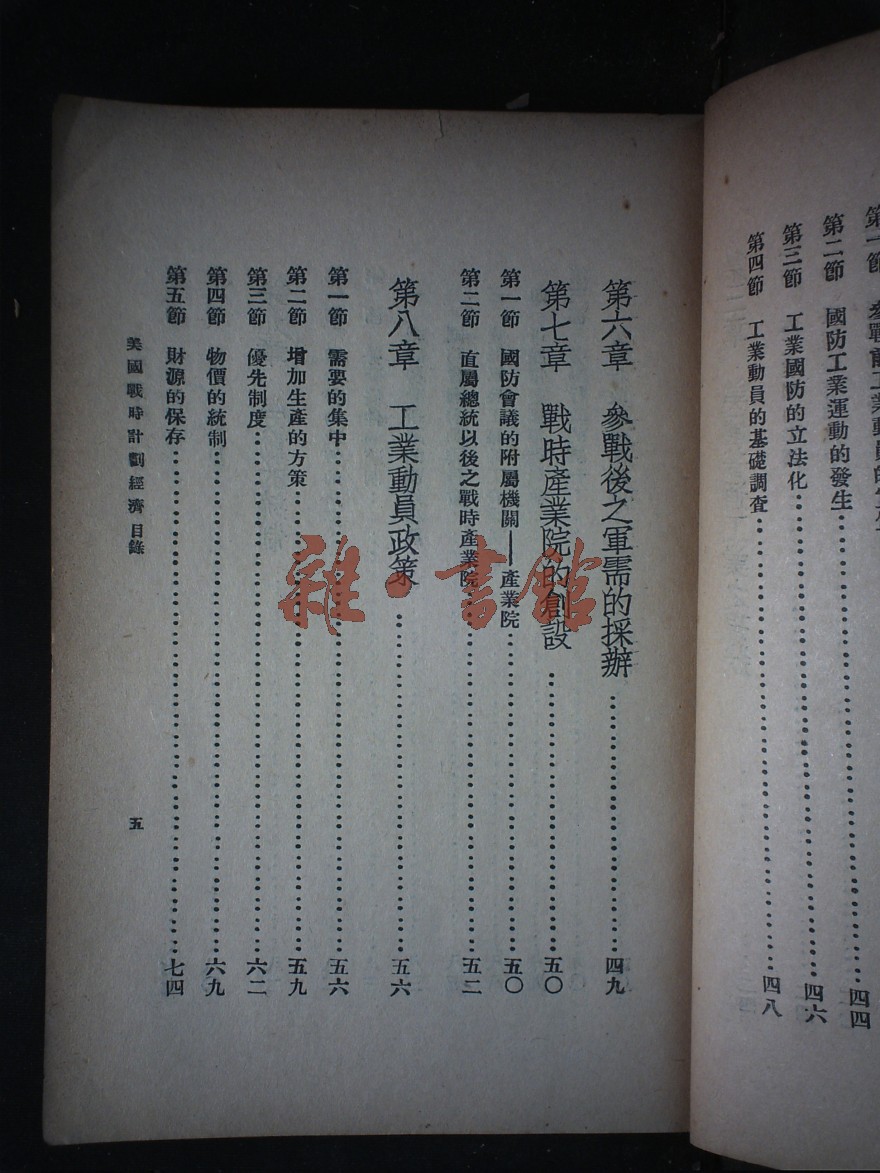 第二節　國防工業運動的發生……四四
第三節　工業國防的立法化……四六
第四節　工業動員的基礎調查……四八
第六章　參戰後之軍需的採辦……四九
第七章　戰時產業院的創設……五〇
第一節　國防會議的附屬機關——產業院……五〇
第二節　直屬總統以後之戰時產業院……五二
第八章　工業動員政策……五六
第一節　需要的集中……五六
第二節　增加生產的方策……五九
第三節　優先制度……六二
第四節　物價的統制……六九
第五節　財源的保存……七四
美國戰時計劃經濟 目錄
五
雜·書館